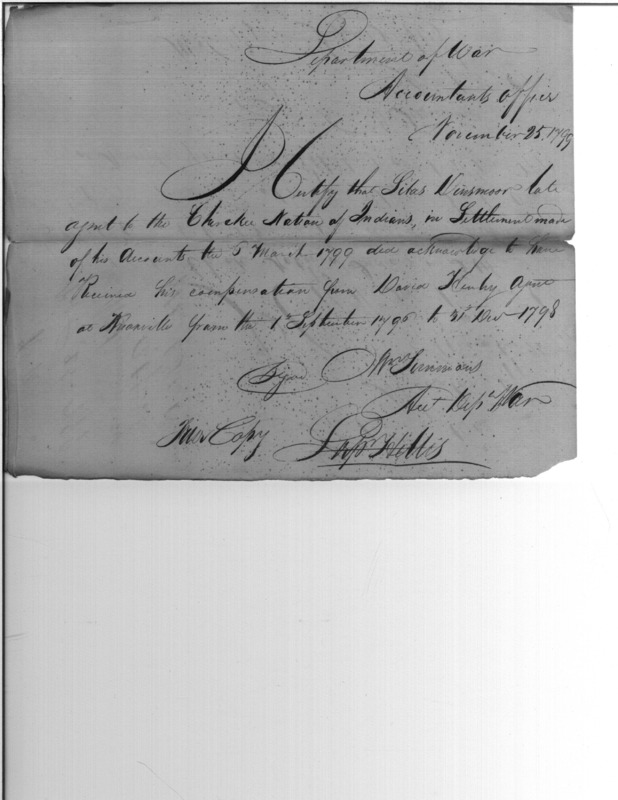 Department of War
Accountants office
November 25. 1799
I Certify that Silas Dinsmoor late
agent to the Cherokee Nation of Indians, in Settlement made
of his Accounts the 5 March 1799 did acknowledge to have
Received his compensation from David Henley agent
at Knoxville from the 1st September 1796 to 31st Decr 1798
Signd Wm Simmons
Acct Dept War
True Copy